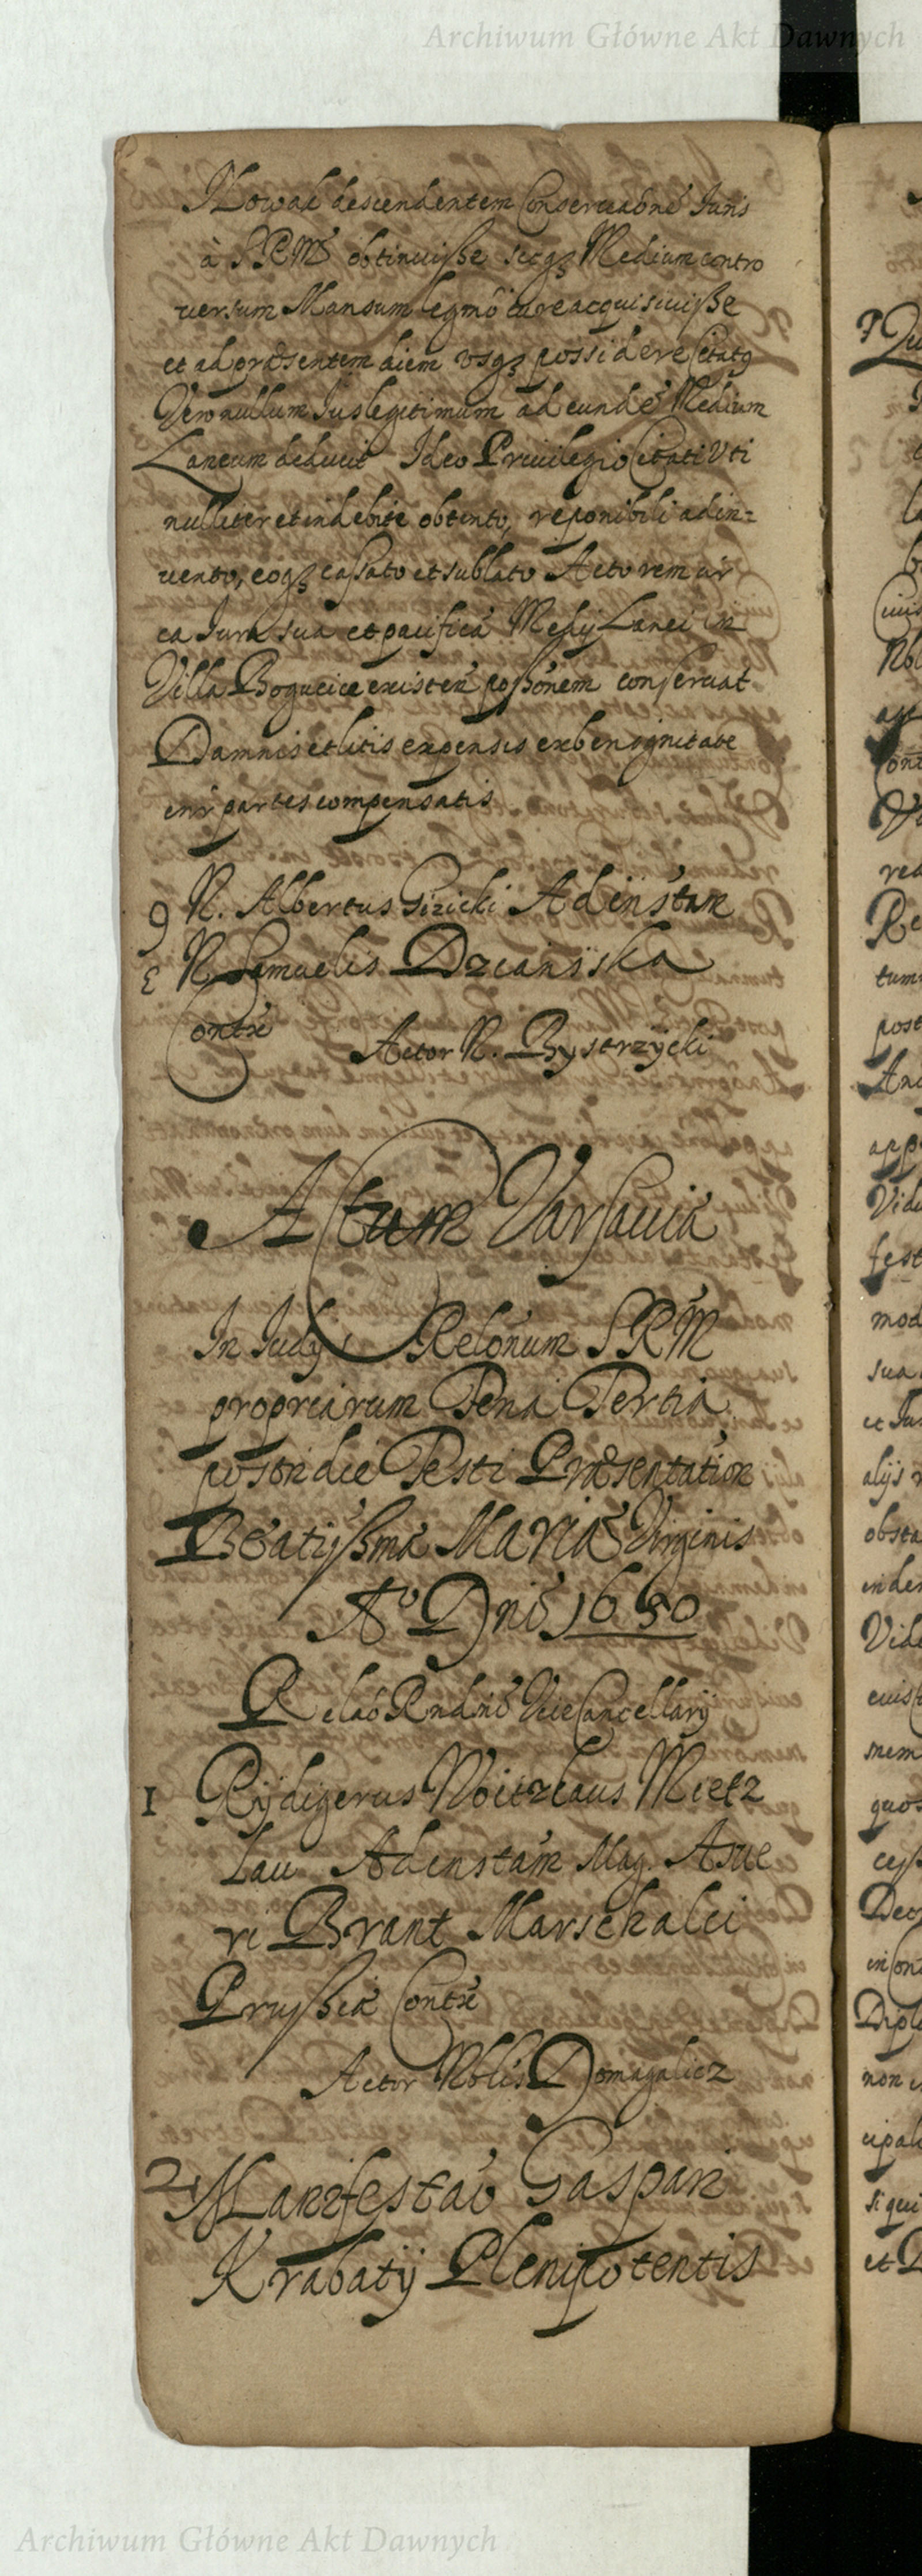 Archiwum Główne Akt Dawnych
Nowak descendentem Conservaõne Juris
à SRMᵗᵉ obtinuisse sicqȝ Medium contro
versum Mansum legmõ iure acquisivisse
et ad præsentem diem usqȝ possidere Citatq
Vero nullum Jus legitimum ad eundē Medium
Laneum deducit Ideo Privilegio Citati Uti
nulliter et indebite obtento, reponibili adin=
vento, eoqȝ cassato et sublato Actorem cir
ca Jura sua et pacificā Medij Lanei in
Villa Bogucice existeñ possõnem conservat
Damnis et litis expensis ex benignitate
inter partes compensatis
9 N. Albertus Gizicki Ad instan
E N. Samuelis Dzianiska
Contr̃
Actor N. Bystrzycki
Actum Varsaviæ
In Judÿs Relõnum SRM
propriarum Feria Tertia
postridie Festi Præsentation
Beatissimæ MARIÆ Virginis
Aº Dnĩ 1650
Relaõ Rndni ViceCancellarij
1 Rÿdigerus Woitzlaus Mietz
lau Ad instan Mag. Asue
ri Brant Marschalci
Prussiæ Contr̃
Actor Nobilis Domagalicz
2 Manifestaõ Gaspari
Krabatij Plenipotentis
Archiwum Główne Akt Dawnych